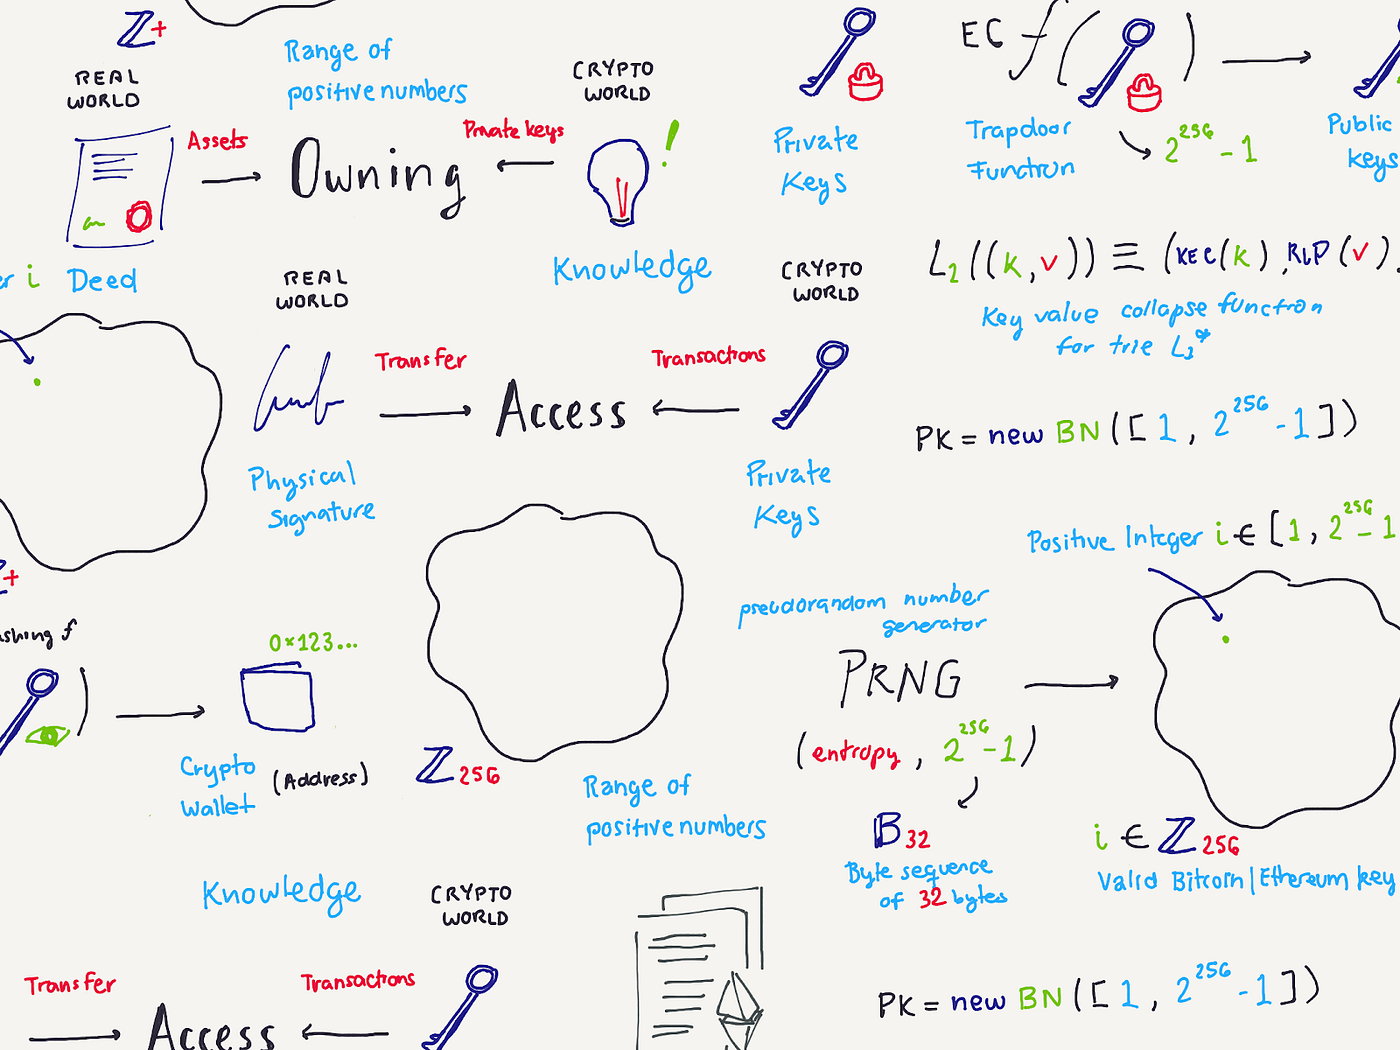 ℤ+
REAL
WORLD
Range of
positive numbers
CRYPTO
WORLD
Assets
Owning
Private keys
!
Deed
Knowledge
er i
Private
Keys
EC f( )
Trapdoor
Function
2^256 - 1
Public
Keys
L2((k,v)) ≡ (KEC(k), RLP(v)),
Key value collapse function
for trie L3*
REAL
WORLD
CRYPTO
WORLD
Transfer
Access
Transactions
Physical
Signature
Private
Keys
PK = new BN([1, 2^256 - 1])
Positive Integer i ∈ [1, 2^256 - 1
ℤ+
ashing f
)
0x123...
Crypto
Wallet
(Address)
ℤ256
Range of
positive numbers
pseudorandom number
generator
PRNG
(entropy, 2^256 - 1)
𝔹32
Byte sequence
of 32 bytes
i ∈ ℤ256
Valid Bitcoin|Ethereum key
Knowledge
CRYPTO
WORLD
Transfer
Access
Transactions
PK = new BN([1, 2^256 - 1])